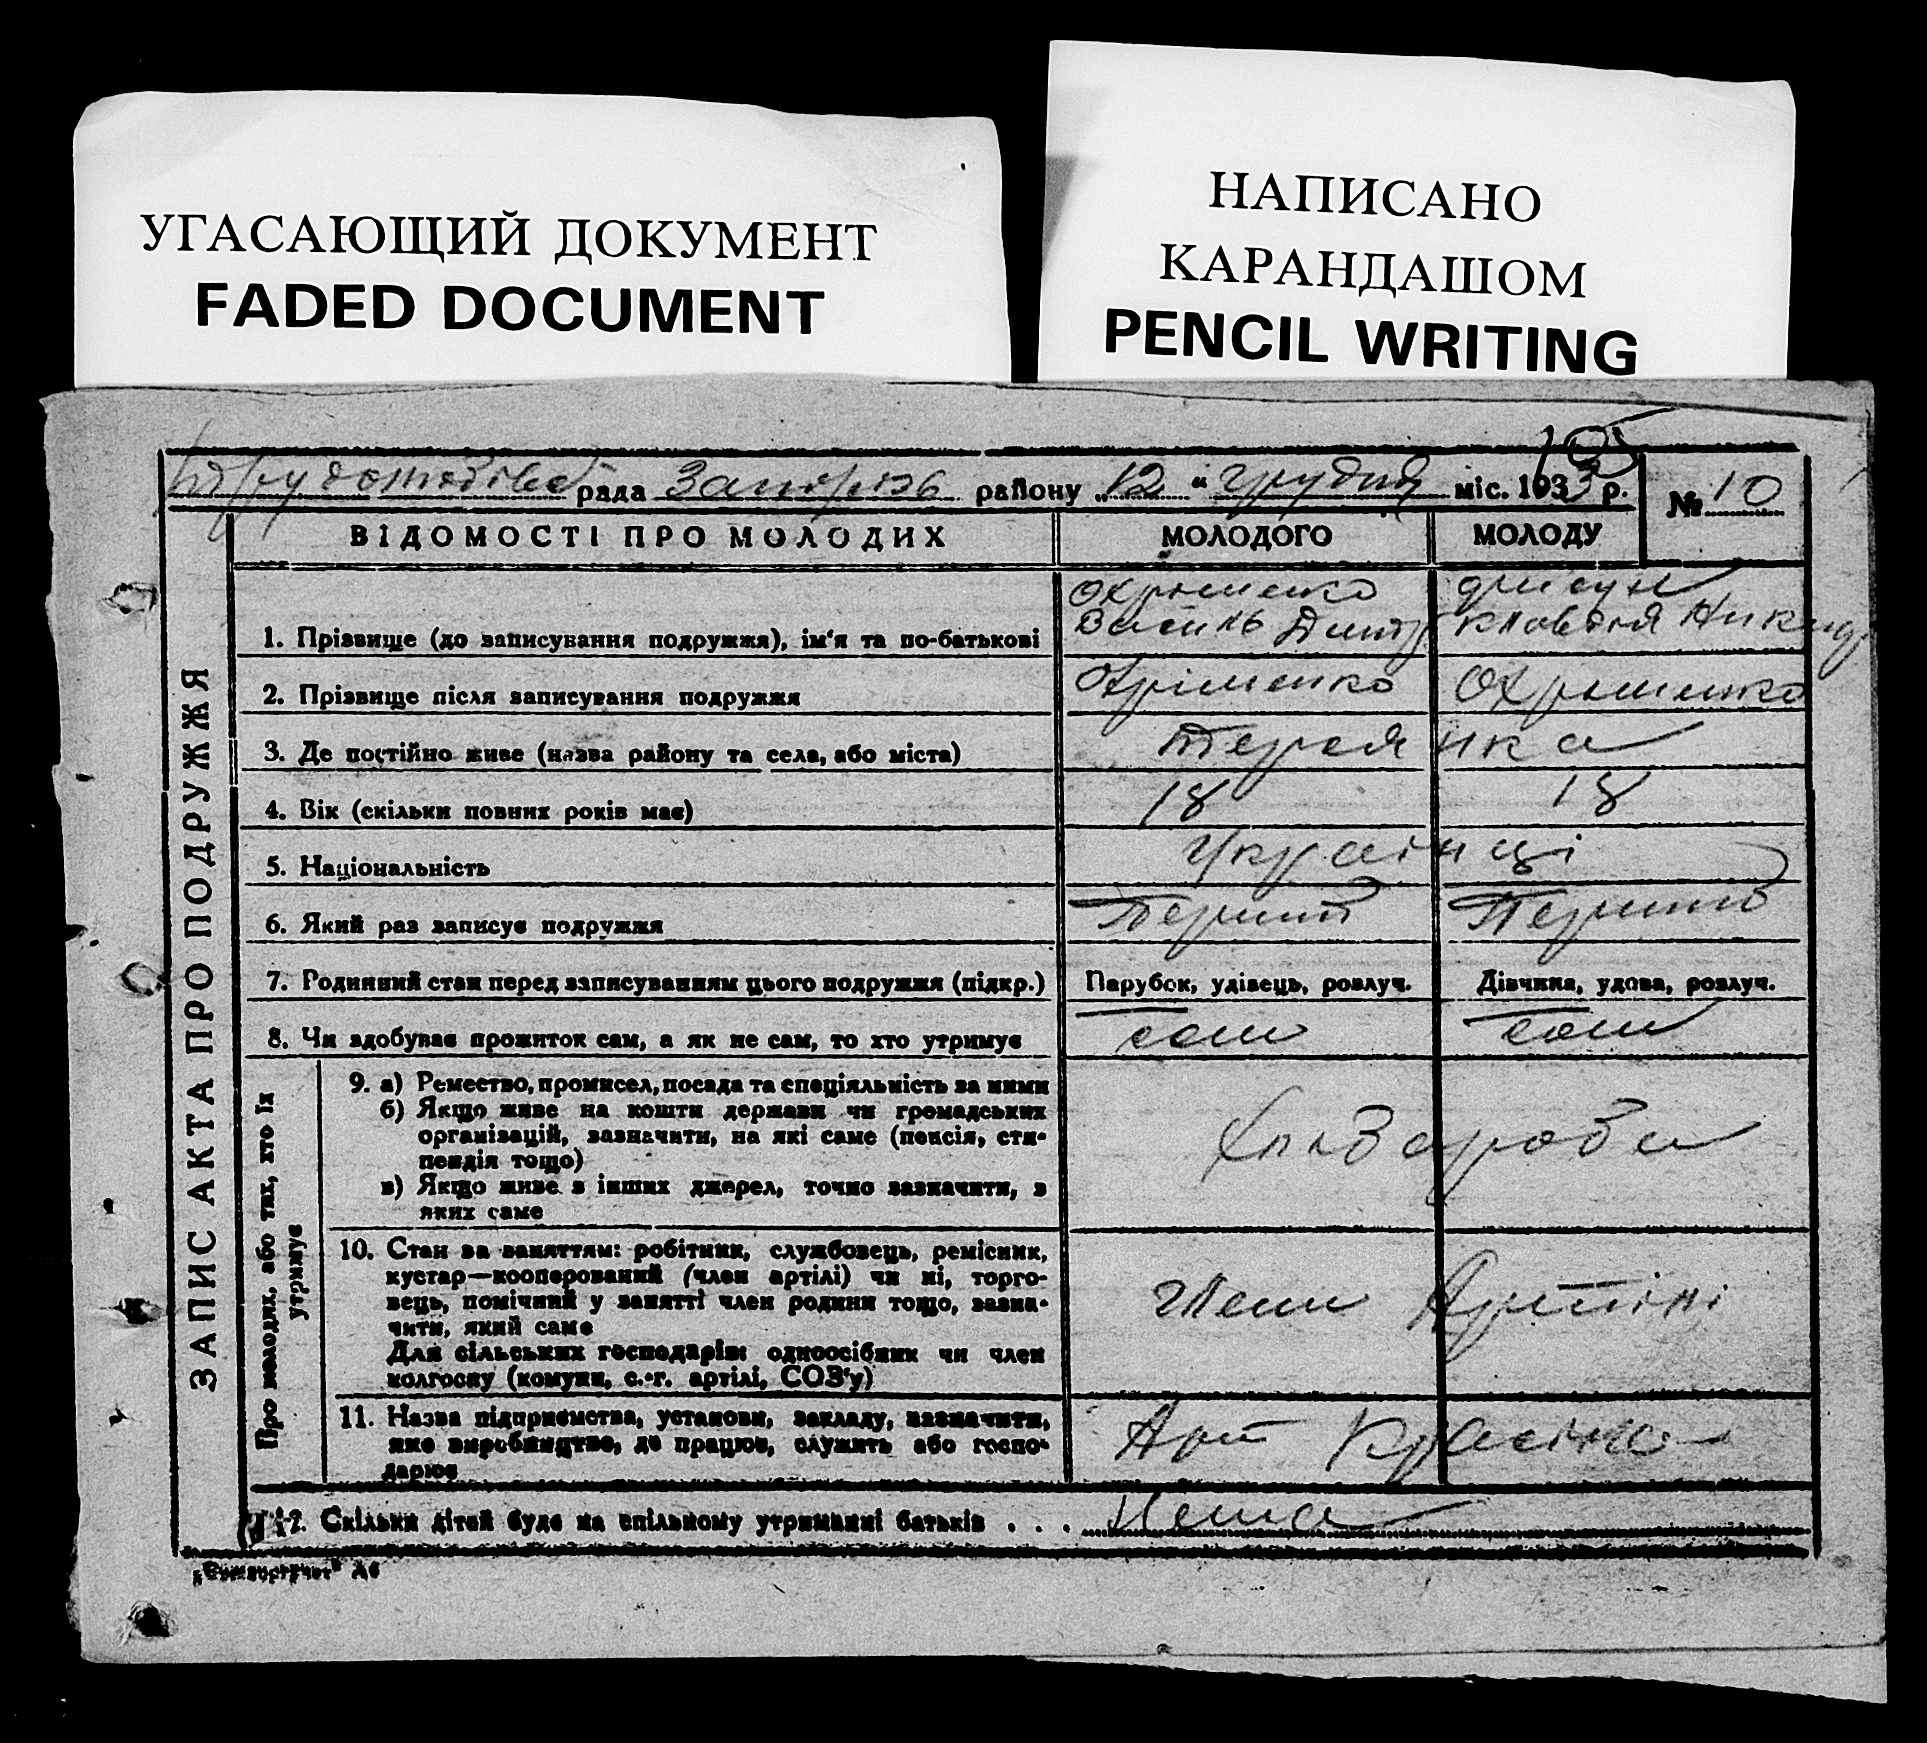 УГАСАЮЩИЙ ДОКУМЕНТ
FADED DOCUMENT
НАПИСАНО
КАРАНДАШОМ
PENCIL WRITING
105
рада Запоріз району „12“ грудня міс. 1933 р. № 10
ЗАПИС АКТА ПРО ПОДРУЖЖЯ
ВІДОМОСТІ ПРО МОЛОДИХ МОЛОДОГО МОЛОДУ
Охрименко
1. Прізвище (до записування подружжя), ім'я та по-батькові Василь Дмитр Клавдія Никид
2. Прізвище після записування подружжя Охріменко Охрименко
3. Де постійно живе (назва району та села, або міста) Терсянка
4. Вік (скільки повних років має) 18 18
5. Національність Українці
6. Який раз записує подружжя Перший Перший
7. Родинний стан перед записуванням цього подружжя (підкр.) Парубок, удівець, розлуч. Дівчина, удова, розлуч.
8. Чи здобуває прожиток сам, а як не сам, то хто утримує сам сам
Про молодих, або тих, хто їх утримує
9. а) Ремество, промисел, посада та спеціяльність за ними
б) Якщо живе на кошти держави чи громадських
організацій, зазначити, на які саме (пенсія, сти-
пендія тощо)
в) Якщо живе з інших джерел, точно зазначити, з
яких саме
Хлібороби
10. Стан за заняттям: робітник, службовець, ремісник,
кустар—кооперований (член артілі) чи ні, торго-
вець, помічний у занятті член родини тощо, зазна-
чити, який саме
Для сільських господарів: одноосібник чи член
колгоспу (комуни, с.-г. артілі, СОЗ'у)
Член Артілі
11. Назва підприємства, установи, закладу, зазначити,
яке виробництво, де працює, служить або госпо-
дарює
Арт Красіна
12. Скільки дітей буде на спільному утриманні батьків . . . Нема